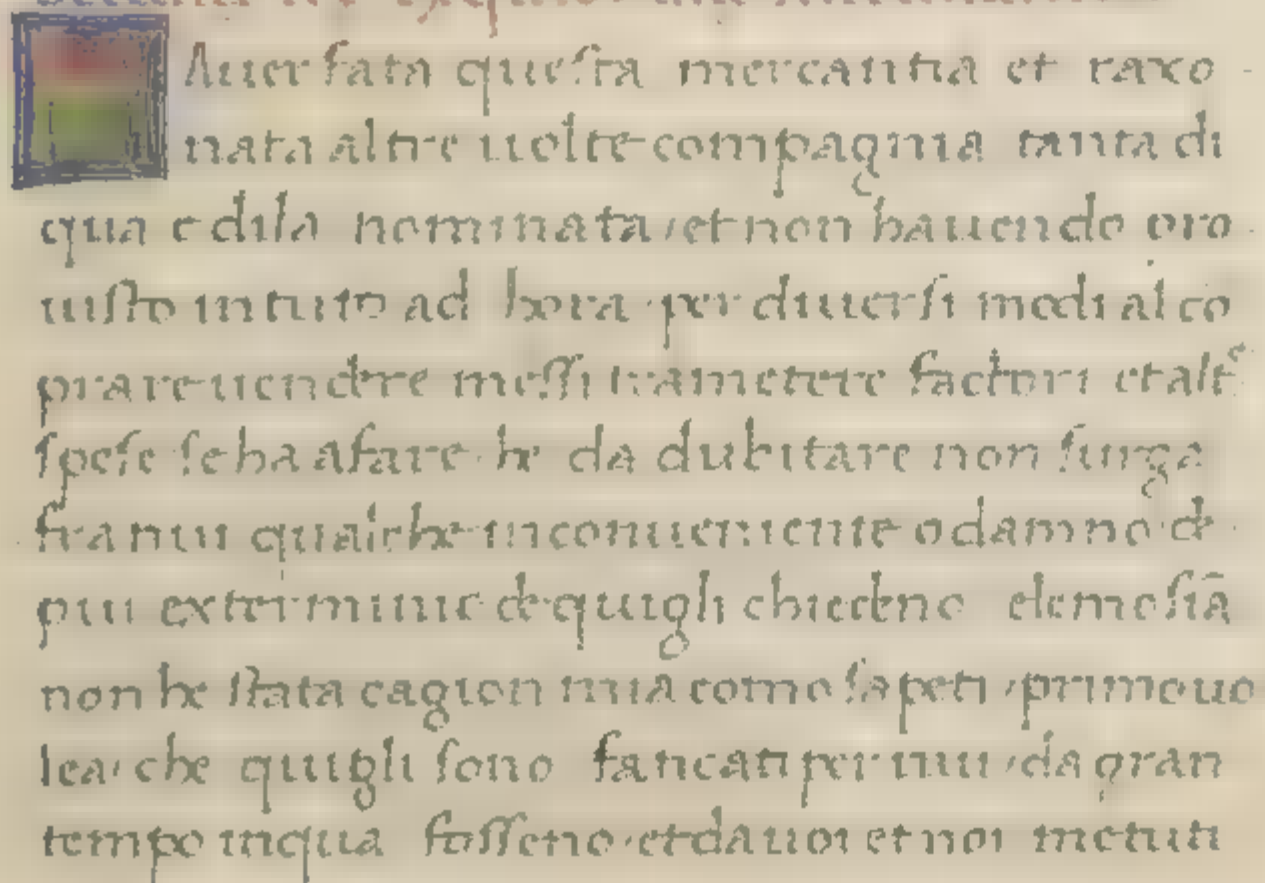 Auer fata questa mercantia et raxo
nata altre uolte compagnia tanta di
qua e dila nominata / et non hauendo pro
uisto in tuto ad hora per diuersi modi al co
prare uendere messi trametere factori et alt^e
spese se ha afare he da dubitare non surga
fra nui qualche inconueniente o damno de
piu exterminie de quigli chiedeno elemosiā
non he stata cagion mia como sapeti / primo uo
lea che quigli sono fancati per nui / da gran
tempo in qua fosseno et da uoi et noi metuti